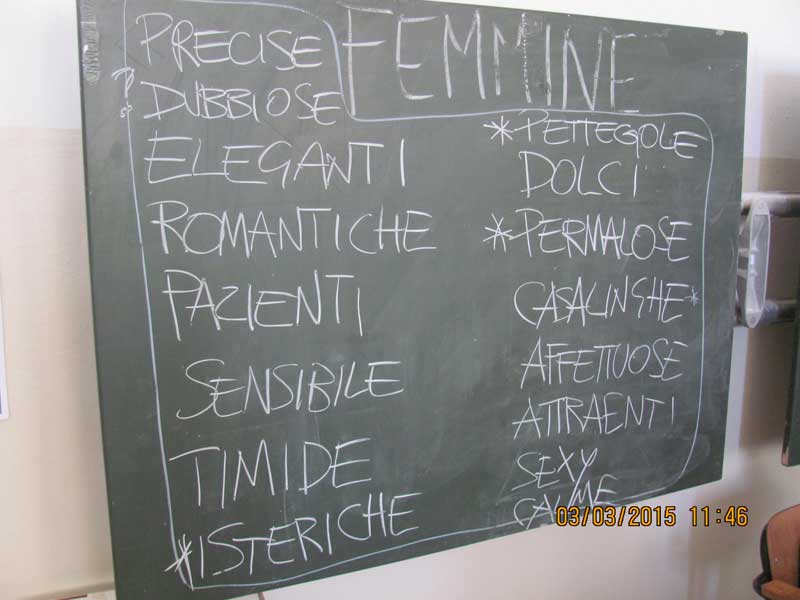 FEMMINE
PRECISE
DUBBIOSE
ELEGANTI
ROMANTICHE
PAZIENTI
SENSIBILE
TIMIDE
*ISTERICHE
*PETTEGOLE
DOLCI
*PERMALOSE
CASALINGHE*
AFFETTUOSE
ATTRAENTI
SEXY
CALME
03/03/2015 11:46